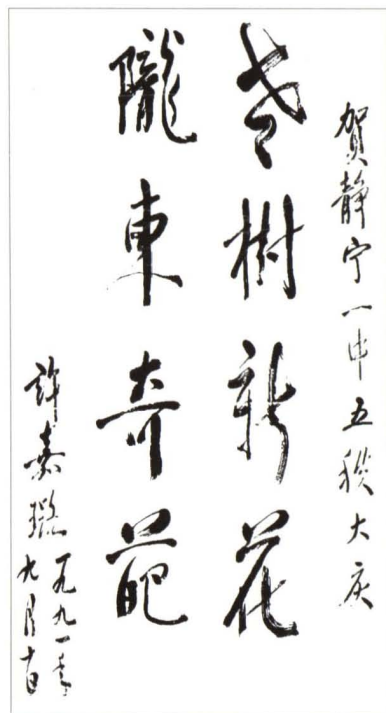 贺静宁一中五秩大庆
老樹新花
隴東奇葩
許嘉璐
一九九一年
九月